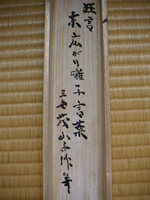 狂言
末広がり囃子言葉
三世茂山千作筆